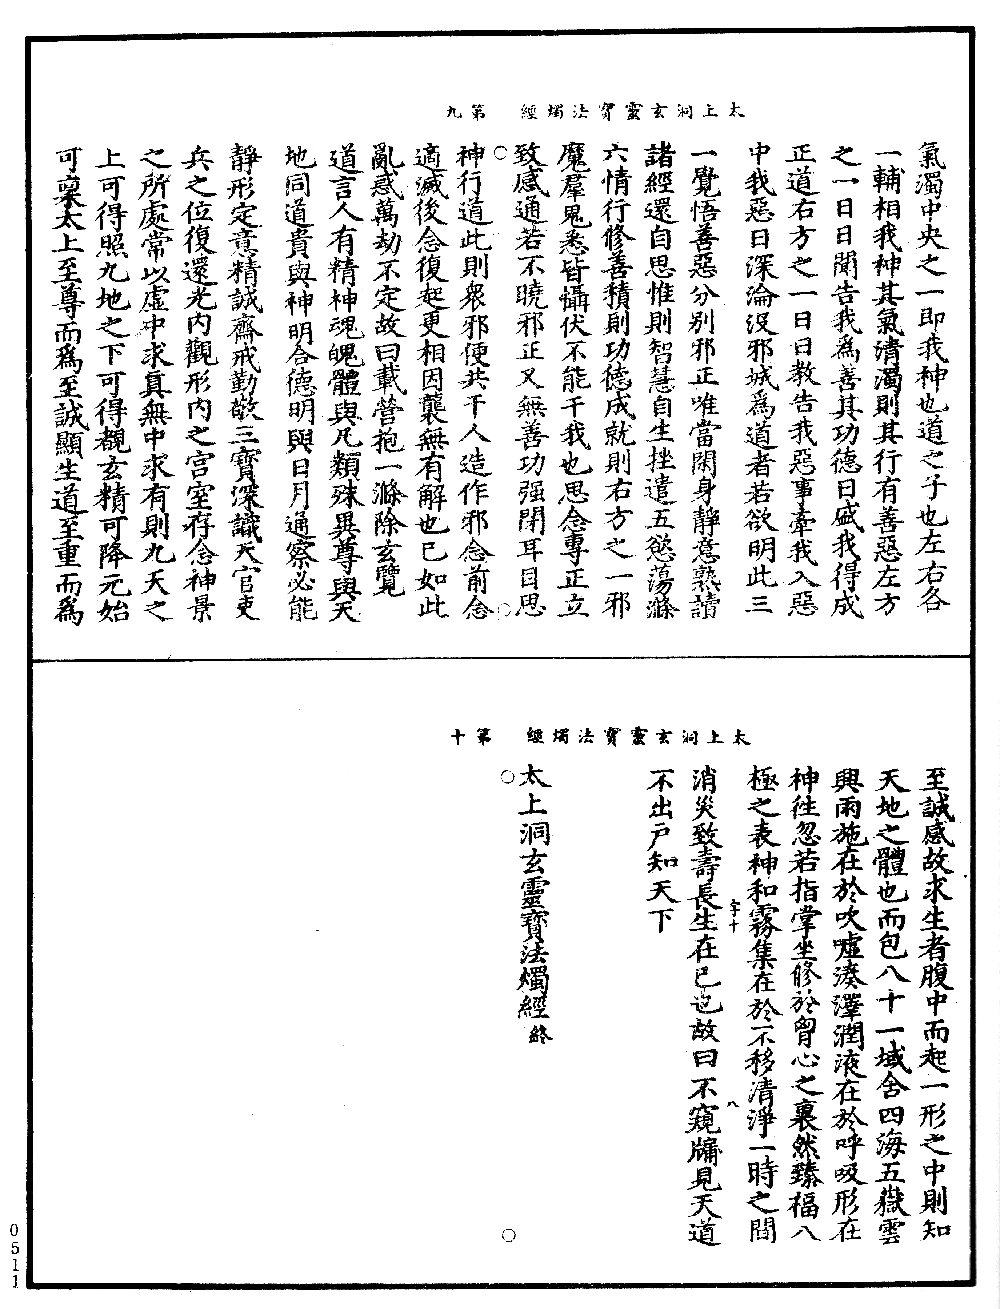 太上洞玄靈寶法燭經　第九
氣濁中央之一即我神也道之子也左右各
一輔相我神其氣清濁則其行有善惡左方
之一日日聞告我為善其功德日盛我得成
正道右方之一日日教告我惡事牽我入惡
中我惡日深淪没邪城為道者若欲明此三
一覺悟善惡分别邪正唯當閑身靜意熟讀
諸經還自思惟則智慧自生挫遣五慾蕩滌
六情行修善積則功德成就則右方之一邪
魔羣鬼悉皆懾伏不能干我也思念專正立
致感通若不曉邪正又無善功强閉耳目思
神行道此則衆邪便共干人造作邪念前念
適滅後念復起更相因襲無有解也已如此
亂惑萬劫不定故曰載營抱一滌除玄覽
道言人有精神魂魄體與凡類殊異尊與天
地同道貴與神明合德明與日月通察必能
靜形定意精誠齋戒勤敬三寶深識天官吏
兵之位復還光内觀形内之宫室存念神景
之所處常以虛中求真無中求有則九天之
上可得照九地之下可得覩玄精可降元始
可稟太上至尊而為至誠顯生道至重而為
太上洞玄靈寶法燭經　第十
至誠感故求生者腹中而起一形之中則知
天地之體也而包八十一域舍四海五嶽雲
興雨施在於吹噓湊澤潤液在於呼吸形在
神徃忽若指掌坐修於胷心之裏然臻福八
極之表神和霧集在於不移清淨一時之間
消災致壽長生在已也故曰不窺牖見天道
不出戶知天下
太上洞玄靈寶法燭經終
字十
八
0511